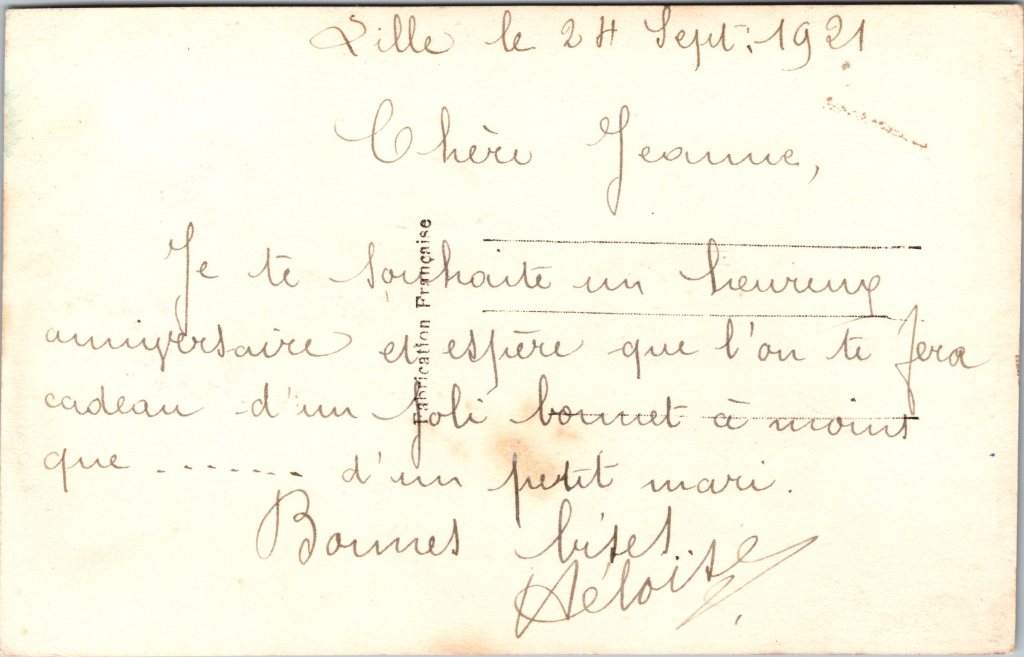 Lille le 24 Sept: 1921
Chère Jeanne,
Je te souhaite un heureux
anniversaire et espère que l'on te fera
cadeau d'un joli bonnet à moins
que ........ d'un petit mari.
Bonnes bises.
Héloïse
Fabrication Française